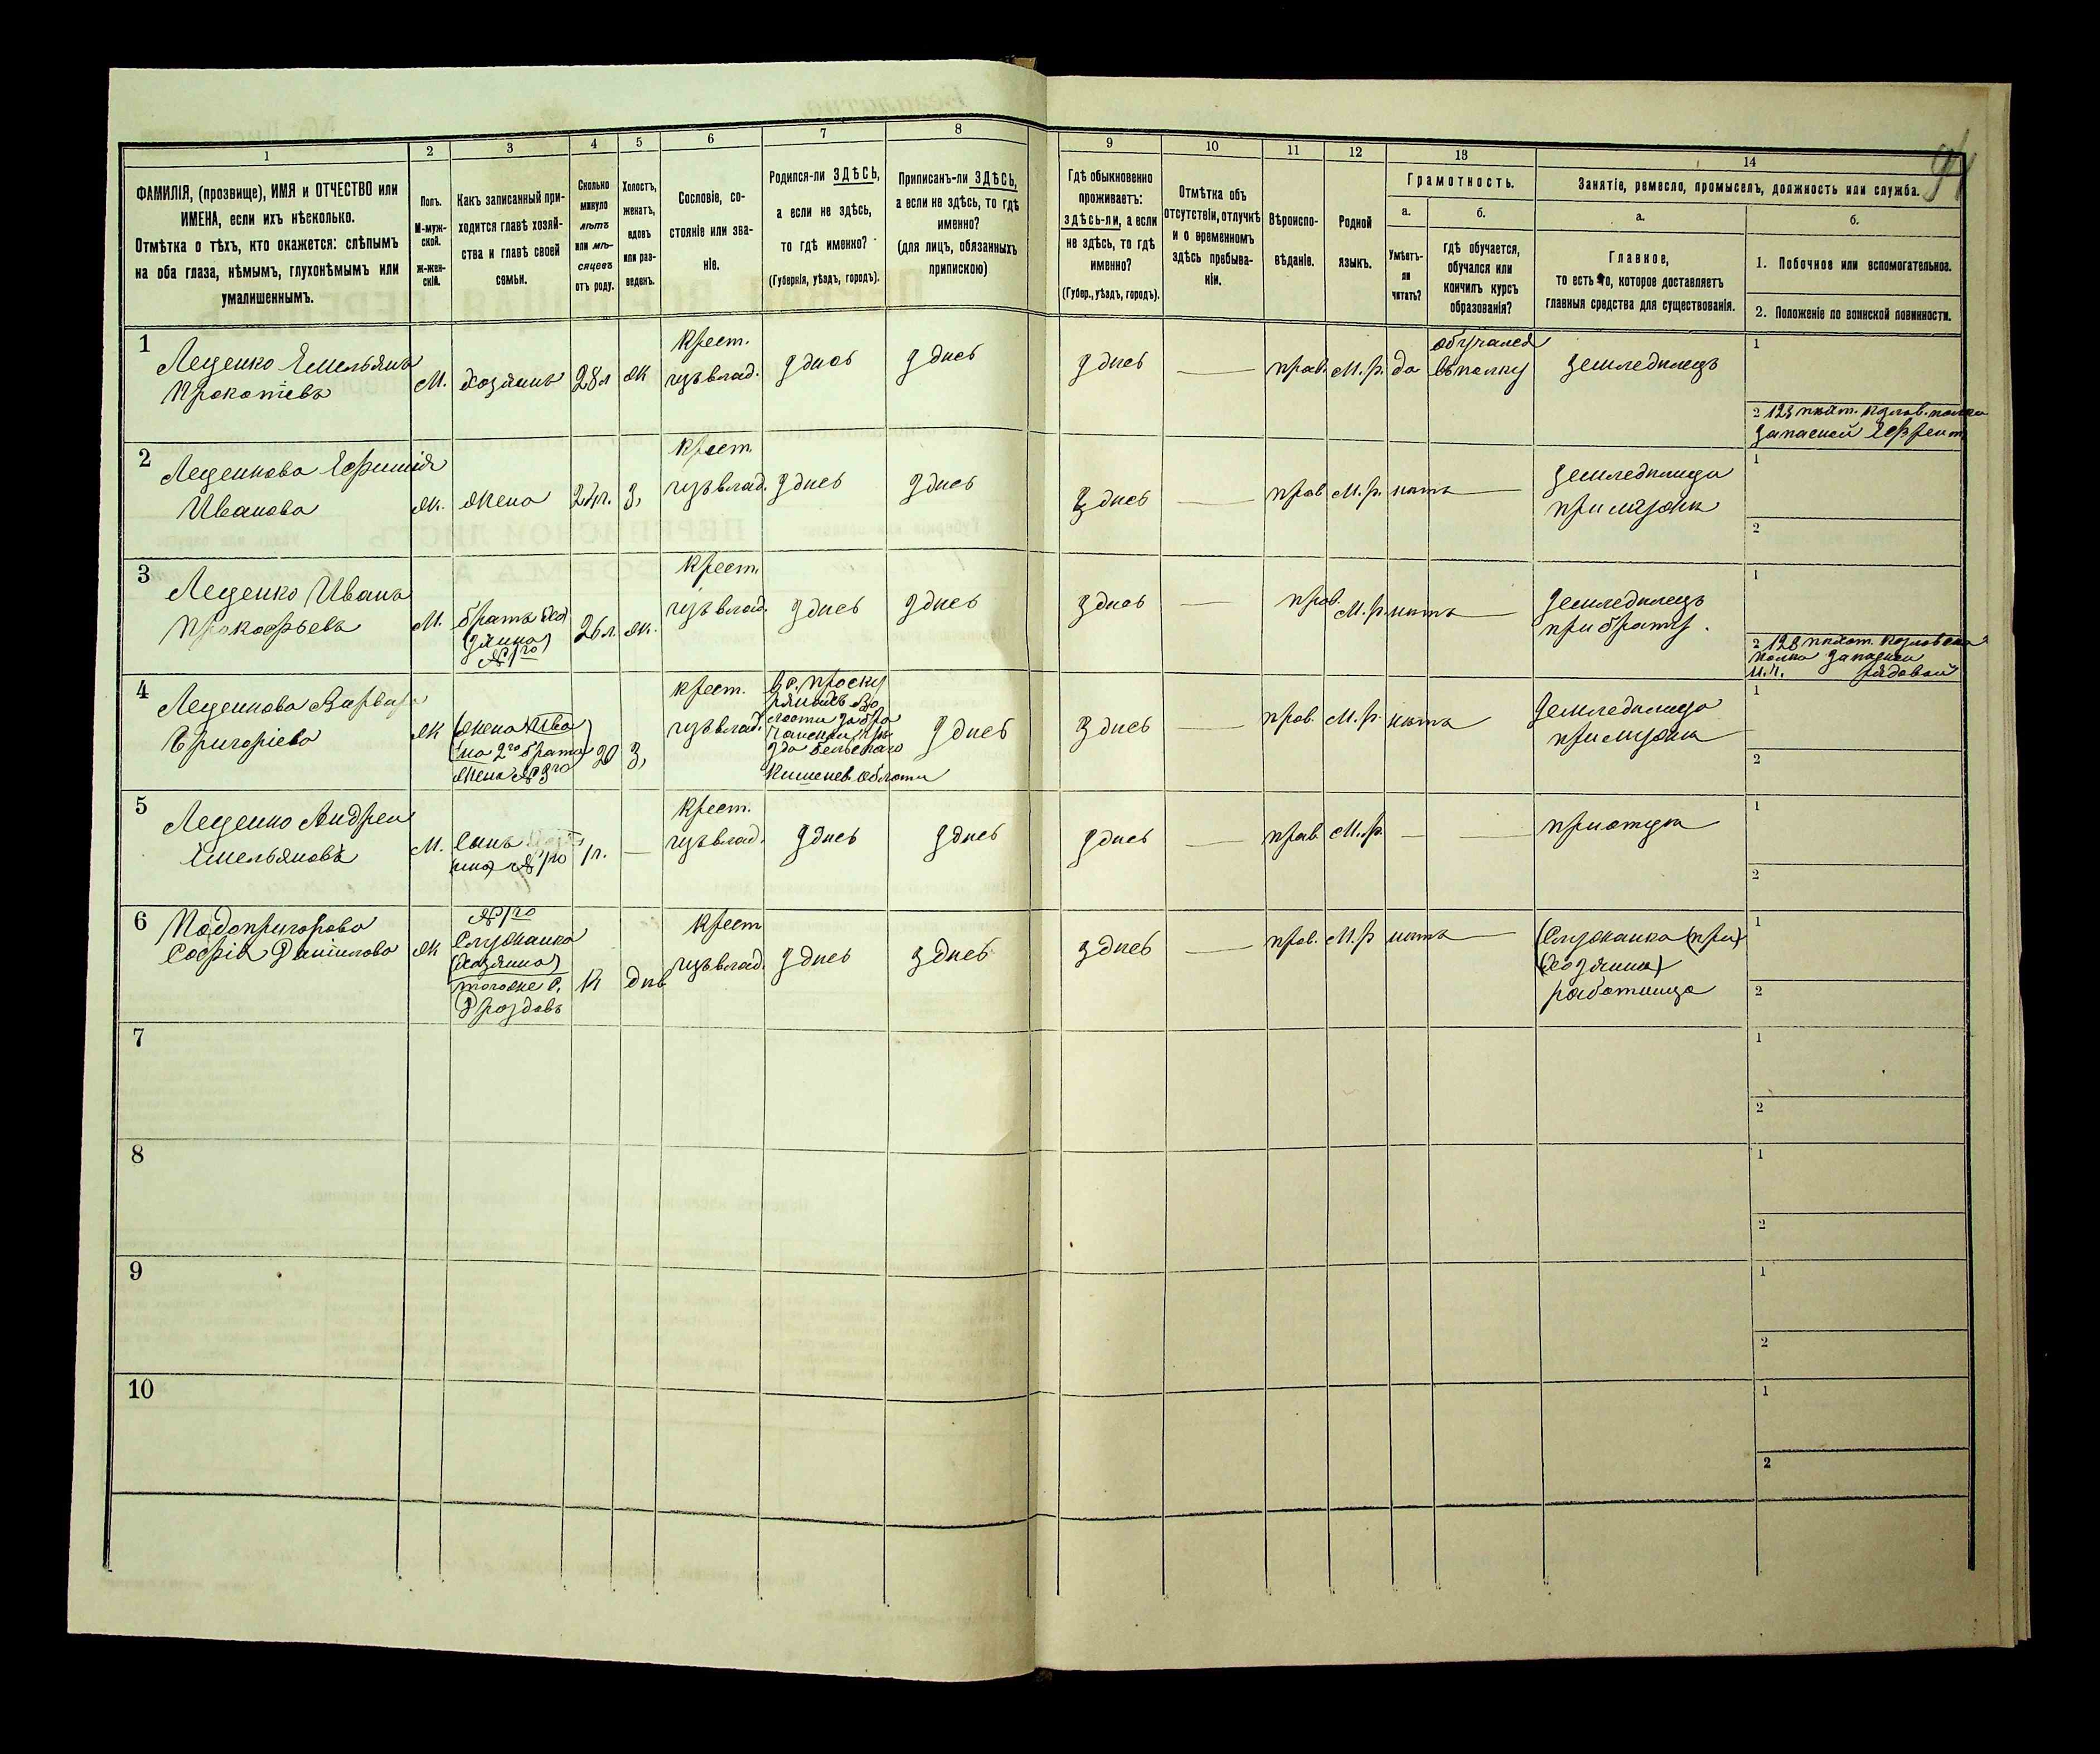 94
1
2
3
4
5
6
7
8
9
10
11
12
13
14
ФАМИЛІЯ, (прозвище), ИМЯ и ОТЧЕСТВО или
ИМЕНА, если ихъ нѣсколько.
Отмѣтка о тѣхъ, кто окажется: слѣпымъ
на оба глаза, нѣмымъ, глухонѣмымъ или
умалишеннымъ.
Полъ.
М-муж-
ской.
Ж-жен-
скій.
Какъ записанный при-
ходится главѣ хозяй-
ства и главѣ своей
семьи.
Сколько
минуло
лѣтъ
или мѣ-
сяцевъ
отъ роду.
Холостъ,
женатъ,
вдовъ
или раз-
веденъ.
Сословіе, со-
стояніе или зва-
ніе.
Родился-ли ЗДѢСЬ,
а если не здѣсь,
то гдѣ именно?
(Губернія, уѣздъ, городъ).
Приписанъ-ли ЗДѢСЬ,
а если не здѣсь, то гдѣ
именно?
(для лицъ, обязанныхъ
припискою)
Гдѣ обыкновенно
проживаетъ:
здѣсь-ли, а если
не здѣсь, то гдѣ
именно?
(Губер., уѣздъ, городъ).
Отмѣтка объ
отсутствіи, отлучкѣ
и о временномъ
здѣсь пребыва-
ніи.
Вѣроиспо-
вѣданіе.
Родной
языкъ.
Грамотность.
а.
Умѣетъ-
ли
читать?
б.
гдѣ обучается,
обучался или
кончилъ курсъ
образованія?
Занятіе, ремесло, промыселъ, должность или служба.
а.
Главное,
то есть то, которое доставляетъ
главныя средства для существованія.
б.
1. Побочное или вспомогательное.
2. Положеніе по воинской повинности.
1
Леценко Емельянъ
Прокофіевъ
М.
хозяинъ
28 л
ж
крест.
изъ влад.
здѣсь
здѣсь
здѣсь
прав.
М.р.
да
обучался
въ полку
земледѣлецъ
1
2 123 пѣхот. Козлов. полка
запасной Ефрейт
2
Леценкова Ефимія
Иванова
ж.
жена
24 г.
З,
крест.
изъ влад.
здѣсь
здѣсь
здѣсь
прав
М.р.
нѣтъ
земледѣлица
при мужѣ
1
2
3
Леценко Иванъ
Прокофьевъ
М.
братъ хо
(зяина)
№1го
26 л.
ж.
крест.
изъ влад.
здѣсь
здѣсь
здѣсь
прав.
М.р.
нѣтъ
земледѣлецъ
при братѣ.
1
полка
рядовой
4
Леценкова Варвара
Григоріева
ж
(жена Ива
на 2го брата)
жена №3го
20
З,
крест.
изъ влад.
здѣсь
здѣсь
прав.
М.р.
нѣтъ
земледѣлица
при мужѣ
1
2
5
Леценко Андрей
Емельяновъ
М.
Сынъ
№1го
1 г.
крест.
изъ влад.
здѣсь
здѣсь
здѣсь
прав.
М.р
при отцѣ
1
2
6
Подопригорова
Софія Даніилова
ж
№1го
служанка
(хозяина)
тогоже с.
Дроздовъ
дѣв
крест
изъ влад.
здѣсь
здѣсь
здѣсь
прав.
М.р
нѣтъ
(служанка (при)
(хозяинѣ)
работница
1
2
7
1
2
8
1
2
9
1
2
10
1
2